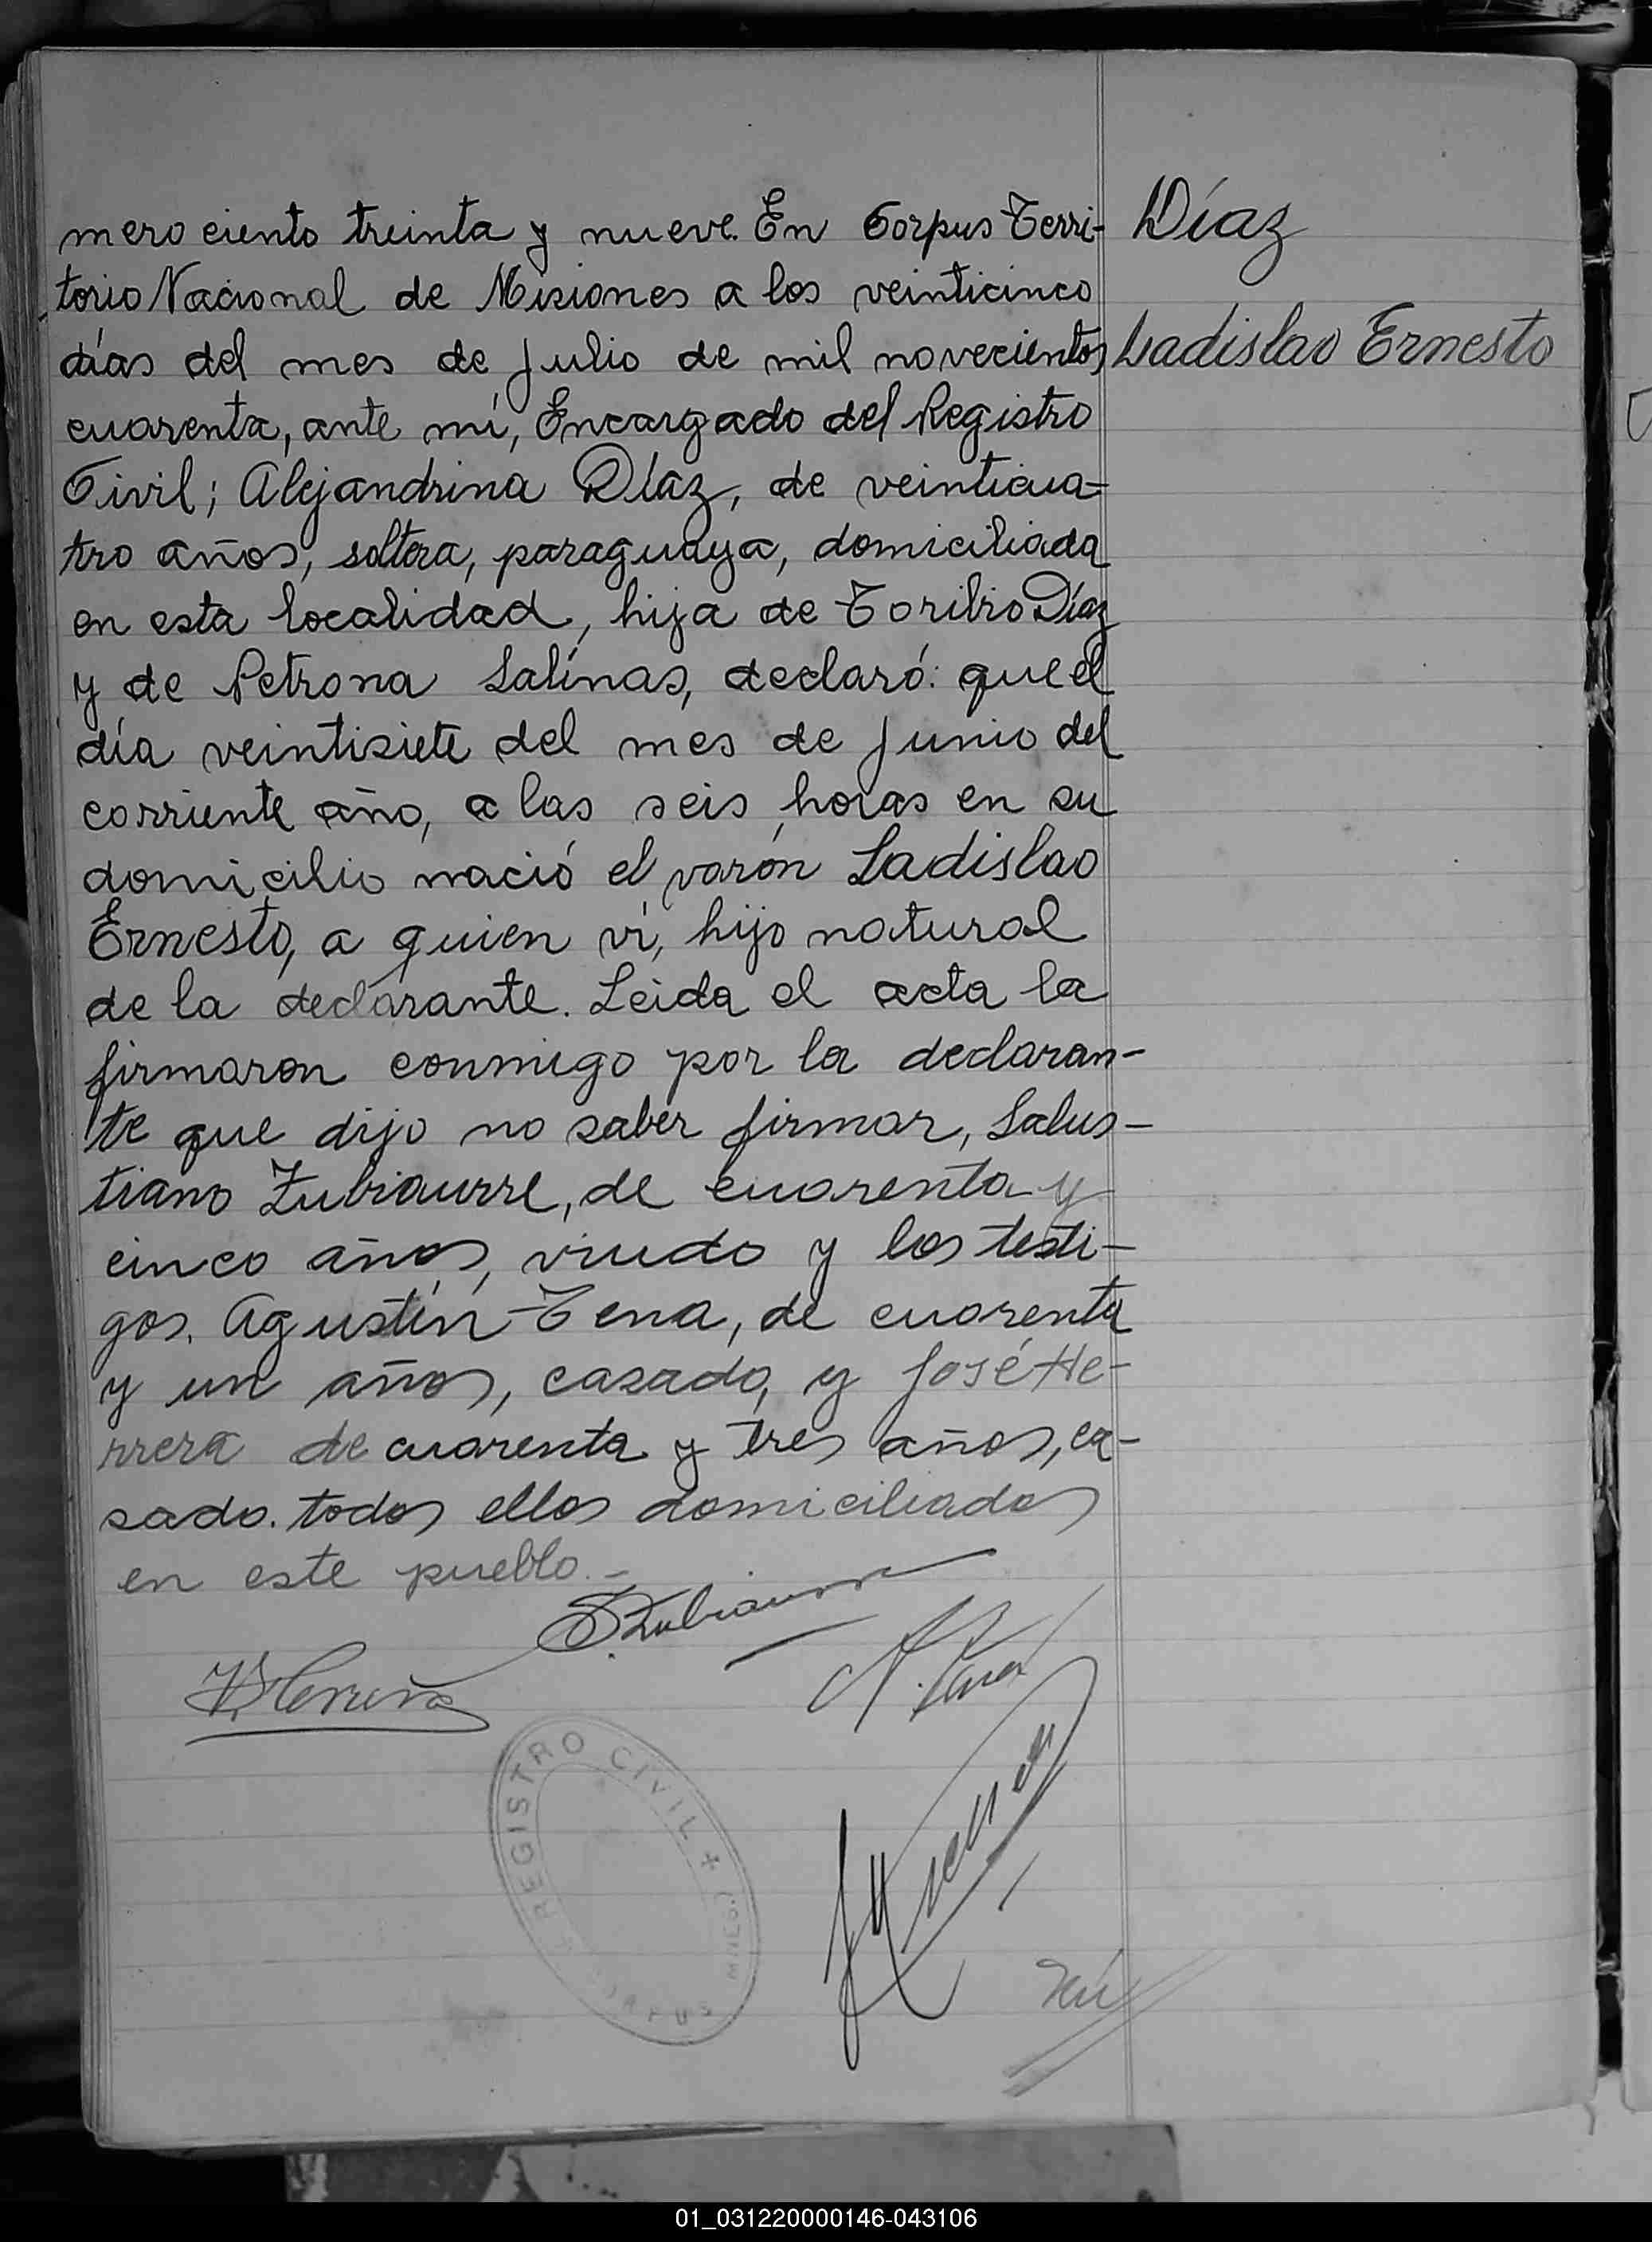 mero ciento treinta y nueve. En Corpus Terri-
torio Nacional de Misiones a los veinticinco
días del mes de Julio de mil novecientos
cuarenta, ante mí, Encargado del Registro
Civil; Alejandrina Díaz, de veinticua=
tro años, soltera, paraguaya, domiciliada
en esta localidad, hija de Toribio Díaz
y de Petrona Salinas, declaró: que el
día veintisiete del mes de Junio del
corriente año, a las seis horas en su
domicilio nació el varón Ladislao
Ernesto, a quien ví, hijo natural
de la declarante. Leida el acta la
firmaron conmigo por la declaran-
te que dijo no saber firmar, Salus-
tiano Zubiaurre, de cuarenta y
cinco años, viudo y los testi-
gos. Agustín Tena, de cuarenta
y un años, casado, y José He-
rrera de cuarenta y tres años, ca-
sado. todos ellos domiciliados
en este pueblo.-
Díaz
Ladislao Ernesto
S Zubiaurre
Herrera
A. Tena
REGISTRO CIVIL + CORPUS
01_031220000146-043106